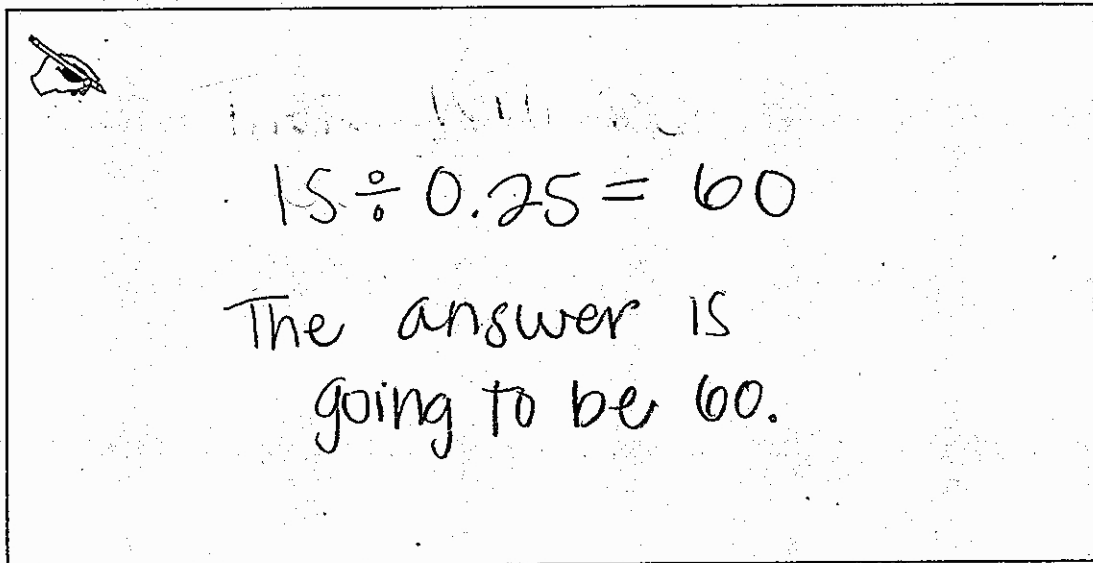 15 ÷ 0.25 = 60
The answer is
going to be 60.